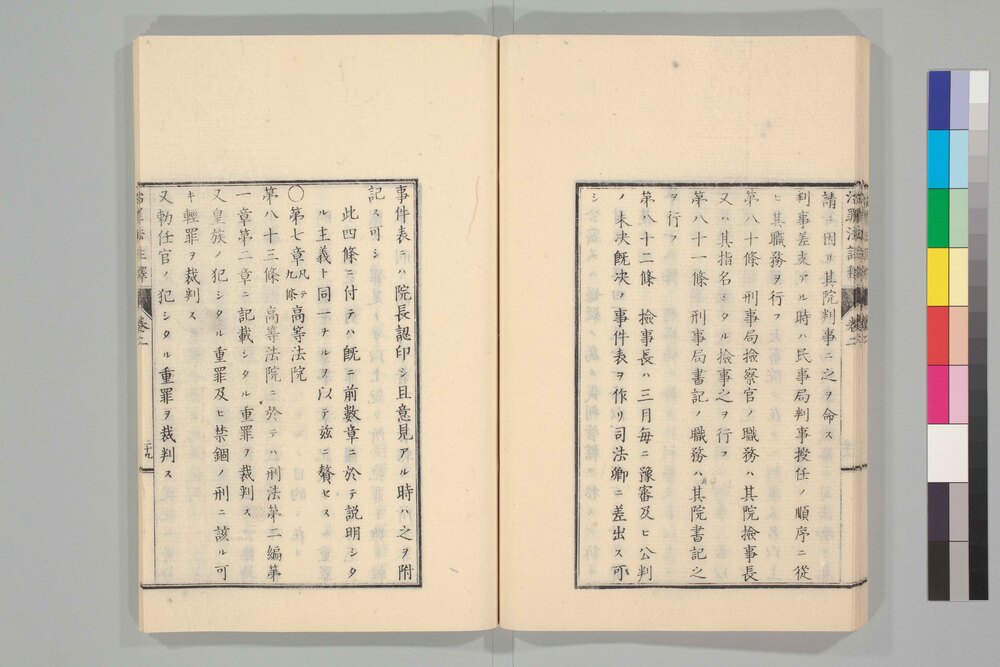 請ニ因リ其院判事ニ之ヲ命ス
判事差支アル時ハ民事局判事授任ノ順序ニ從
ヒ其職務ヲ行フ
第八十條 刑事局檢察官ノ職務ハ其院檢事長
又ハ其指名シタル檢事之ヲ行フ
第八十一條 刑事局書記ノ職務ハ其院書記之
ヲ行フ
第八十二條 檢事長ハ三月毎ニ豫審及ヒ公判
ノ未决既决ノ事件表ヲ作リ司法卿ニ差出ス可
シ
事件表ニハ院長認印シ且意見アル時ハ之ヲ附
記ス可シ
此四條ニ付テハ既ニ前數章ニ於テ説明シタ
ル主義ト同一ナルヲ以テ茲ニ贅セス
〇第七章 凡テ九條 高等法院
第八十三條 高等法院ニ於テハ刑法第二編第
一章第二章ニ記載シタル重罪ヲ裁判ス
又皇族ノ犯シタル重罪及ヒ禁錮ノ刑ニ該ル可
キ輕罪ヲ裁判ス
又勅任官ノ犯シタル重罪ヲ裁判ス